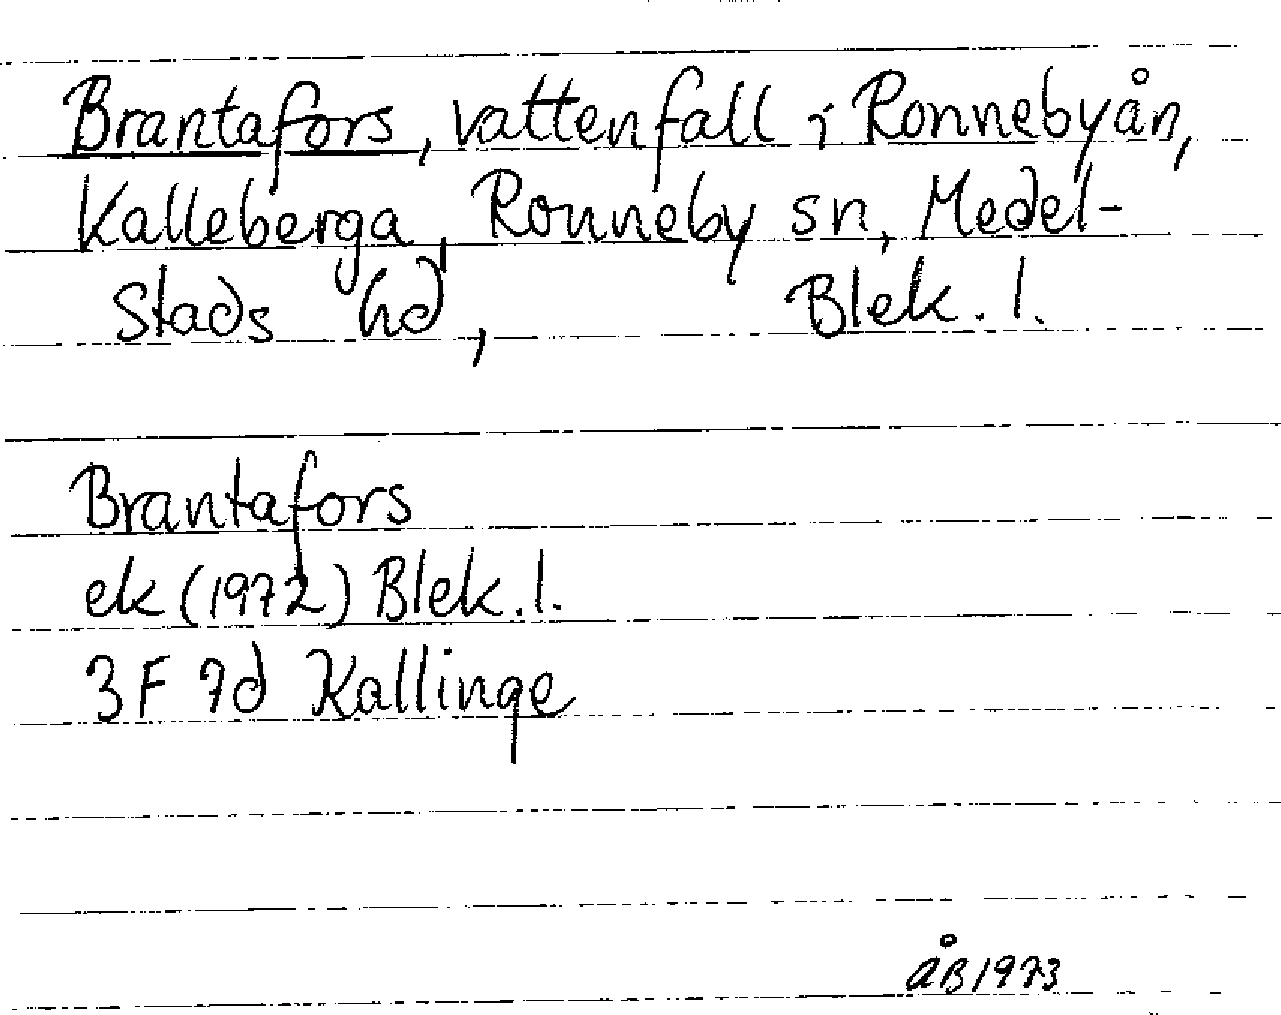 Brantafors, vattenfall i Ronnebyån,
Kalleberga, Ronneby sn, Medel-
stads hd, Blek. l.
Brantafors
ek (1972) Blek. l.
3F 7d Kallinge
ÅB 1973